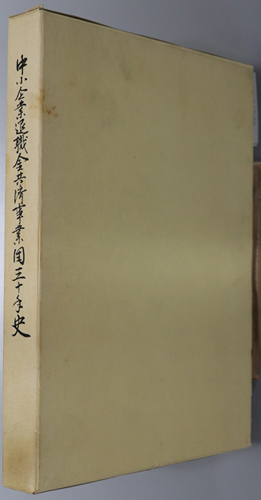 中小企業退職金共済事業団三十年史